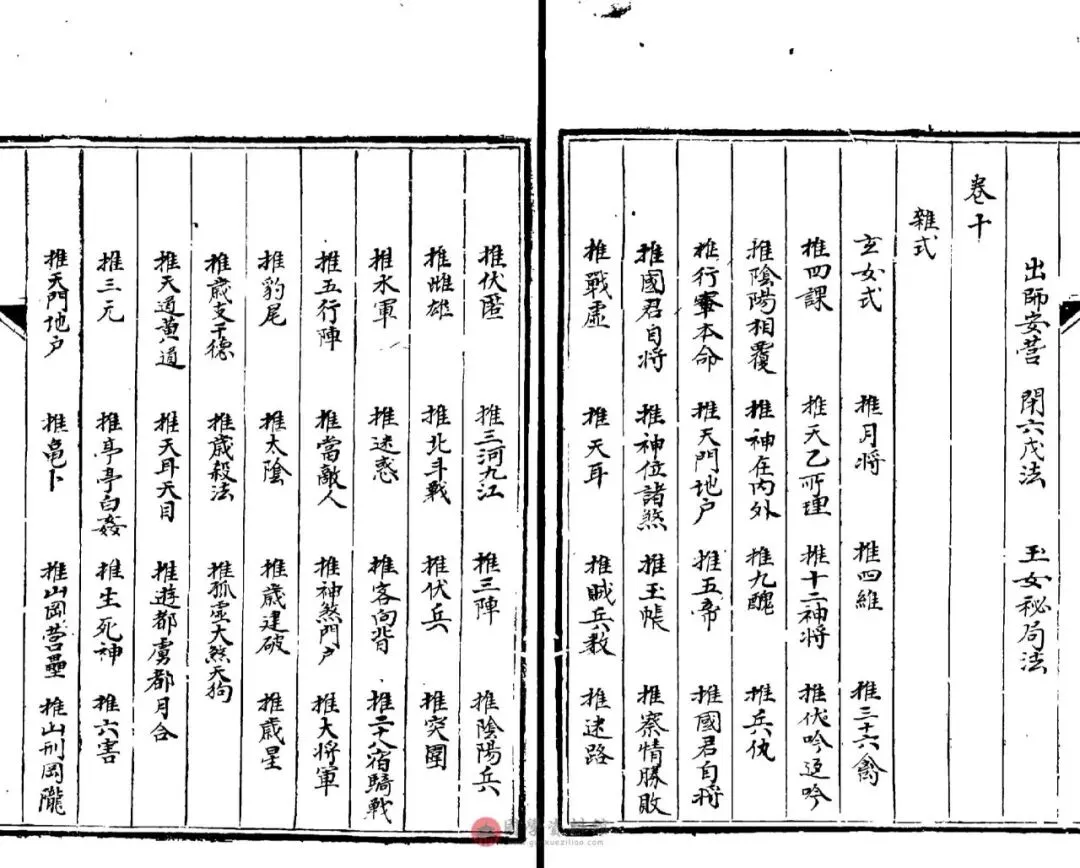 出師安營 閉六戊法 玉女秘局法
卷十
雜式
玄女式 推月将 推四維 推三十六禽
推四課 推天乙所理 推十二神将 推伏吟返吟
推陰陽相覆 推神在内外 推九醜 推兵仇
推行軍本命 推天門地户 推五帝 推國君自将
推國君自将 推神位諸煞 推玉帳 推察情勝敗
推戰虚 推天耳 推賊兵数 推迷路
推伏匿 推三河九江 推三陣 推陰陽兵
推雌雄 推北斗戰 推伏兵 推突圍
推水軍 推迷惑 推客向背 推二十八宿騎戰
推五行陣 推當敵人 推神煞門户 推大将軍
推豹尾 推太陰 推歳建破 推歳星
推歳支干德 推歳殺法 推孤虚大煞天狗
推天道黄道 推天耳天目 推遊都虜都月合
推三元 推亭亭白姦 推生死神 推六害
推天門地户 推龟卜 推山岡营壘 推山刑岡隴